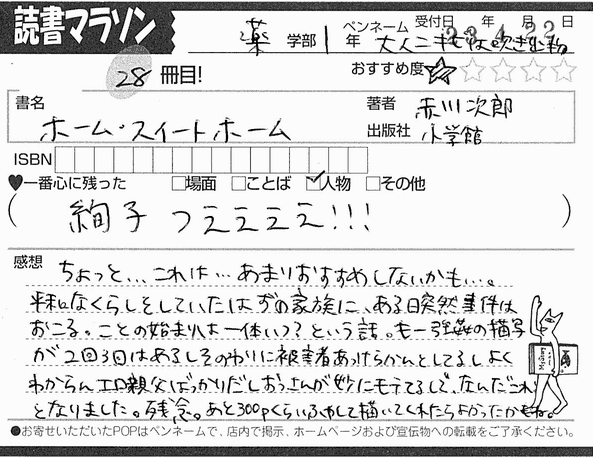 読書マラソン
薬 学部 1 年
ペンネーム 受付日 23 年 4 月 22 日
大人二十むせは吹き出物
28 冊目!
おすすめ度 ★☆☆☆☆
書名 ホーム・スイートホーム
著者 赤川次郎
出版社 小学館
ISBN
♥一番心に残った □場面 □ことば ☑人物 □その他
( 絢子 つえええええ!!! )
感想 ちょっと…これは…あまりおすすめしないかも…。
平和なくらしをしていたはずの家族に、ある日突然事件は
おこる。ことの始まりは一体いつ?という話。も一強姦の描写
が2回3回はあるしそのわりに被害者あっけらかんとしてるしよく
わからんエロ親父ばっかりだしおっさんが妙にモテてるしで、なんだこれ
となりました。残念。あと300pくらいふやして描いてくれたらよかったかもね。
●お寄せいただいたPOPはペンネームで、店内で掲示、ホームページおよび宣伝物への転載をご了承ください。